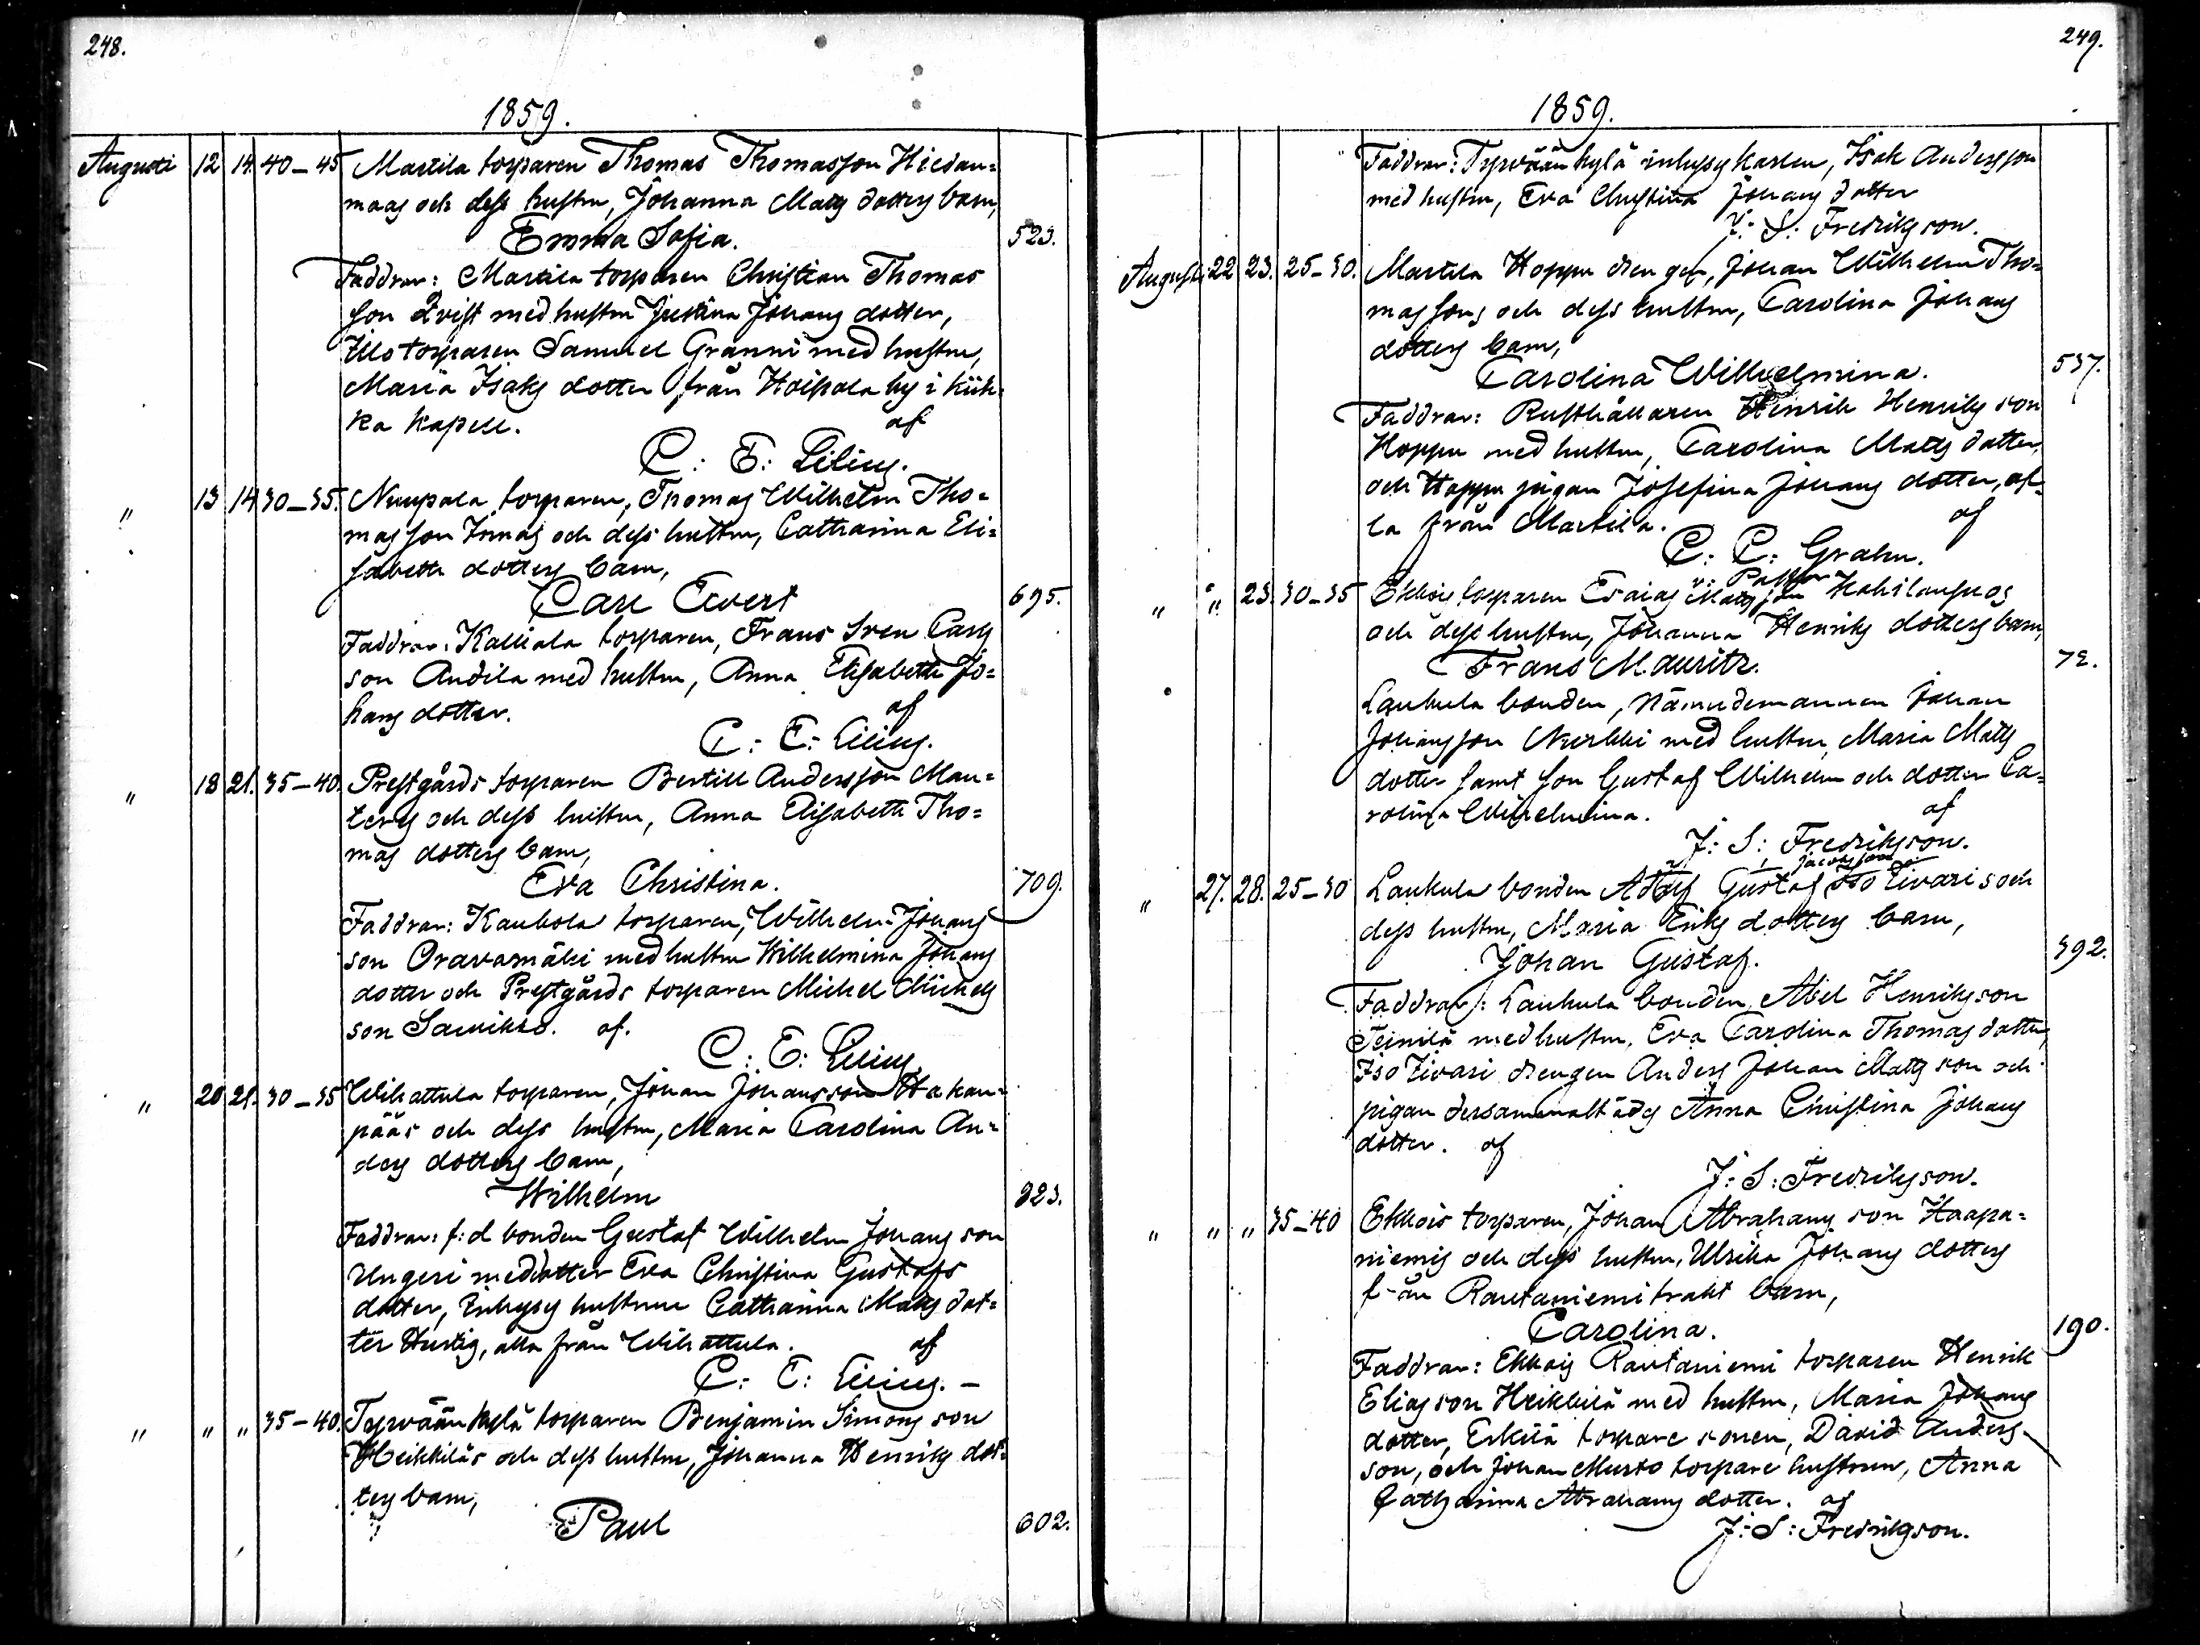 248.
1859.
Augusti 12 14. 40–45 Martila torparen Thomas Thomasson Hiedan=
maas och dess hustru, Johanna Mats dotters barn,
Emma Sofia. 523.
Faddrar: Martila torparen Christian Thomas
son Qvist med hustru Justina Johans dotter,
torparen Samuel Granni med hustru,
Maria Isaks dotter från Hoipola by i Kiik=
ka kapell. af
C: E: Lilius.
" 13 14 30–35. Nuupala torparen, Thomas Wilhelm Tho=
masson och dess hustru, Catharina Eli=
sabeth dotters barn,
Carl Evert 695.
Faddrar: Kalliala torparen, Frans Sven Carls
son Audila med hustru, Anna Elisabeth Jo=
hans dotter. af
C: E: Lilius.
" 18 21. 35–40. Prestgårds torparen Bertill Andersson Man=
ters och dess hustru, Anna Elisabeth Tho=
mas dotters barn,
Eva Christina. 709.
Faddrar: Kaukola torparen, Wilhelm Johans
son Oravamäki med hustru Wilhelmina Johans
dotter och Prestgårds torparen Michel Michels
son af.
C: E: Lilius
" 20 21. 30–35 Wihattula torparen, Johan Johansson Hakan=
pääs och dess hustru, Maria Carolina An=
ders dotters barn,
Wilhelm 323.
Faddrar: f:d bonden Gustaf Wilhelm Johans son
Ungeri med dotter Eva Christina Gustafs
dotter, Inhyses hustrun Catharina Mats dot=
ter alla från Wihattula. af
C: E: Lilius. –
" " " 35–40. Tyrvään kylä torparen Benjamin Simons son
Heikkiläs och dess hustru, Johanna Henriks dot=
ters barn,
Paul 602.
249.
1859.
Faddrar: Tyrvään kylä inhyses karlen, Isak Andersson
med hustru, Eva Christina Johans dotter
J: S: Fredrikson.
Augusti 22 23. 25–30. Martila Hoppu drengen, Johan Wilhelm Tho=
massons och dess hustru, Carolina Johans
dotters barn,
Carolina Wilhelmina. 537.
Faddrar: Rusthållaren Henrik Henriks son
Hoppu med hustru, Carolina Mats dotter,
och Hoppu pigan Josefina Johans dotter, al=
la från Martila. af
C: C: Grahn.
v: Pastor
" " 23. 30–35 Ekkois torparen Esaias Matsson Kohilanpuos
och dess hustru, Johanna Henriks dotters barn,
Frans Mauritz. 72.
Laukula bonden, Nämndemannen Johan
Johansson Nurkki med hustru, Maria Mats
dotter samt son Gustaf Wilhelm och dotter Ca=
rolina Wilhelmina. af
J: S: Fredrikson.
Jacobsson
" 27. 28. 25–30 Laukula bonden Adolf Gustaf Iso Livaris och
dess hustru, Maria Eriks dotters barn,
Johan Gustaf. 392.
Faddrar: Laukula bonden Abel Henrikson
Teinilä med hustru, Eva Carolina Thomas dotter,
Iso Livari drengen Anders Johan Mats son och
pigan dersammastädes Anna Christina Johans
dotter. af
J: S: Fredrikson.
" " " 35–40 Ekkois torparen, Johan Abrahams son Haapa=
niemis och dess hustru, Ulrika Johans dotters
från Rautaniemi trakt barn,
Carolina. 190.
Faddrar: Ekkois Rautaniemi torparen Henrik
Eliasson Heikkilä med hustru, Maria Johans
dotter, Erkilä torpare sonen, David Anders
son, och Johan Musto torpare hustrun, Anna
Catharina Abrahams dotter. af
J: S: Fredrikson.